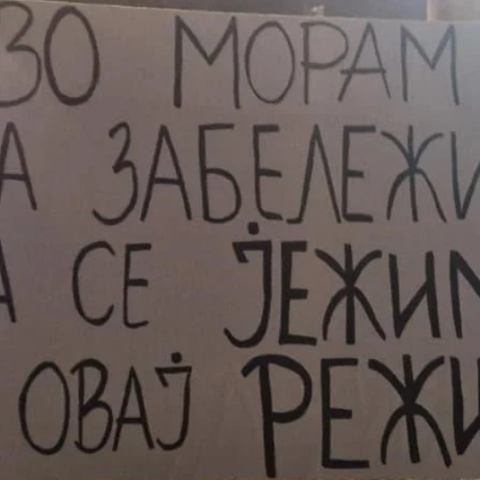 ЗО МОРАМ
А ЗАБЕЛЕЖИ
А СЕ ЈЕЖИМ
ОВАЈ РЕЖИ